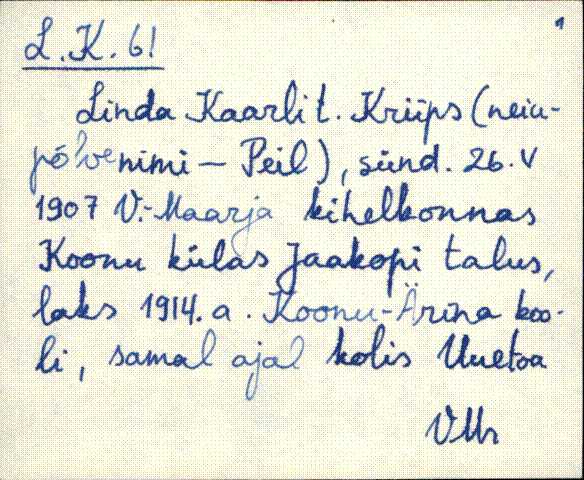 1
L.K. 6!
Linda Kaarli t. Kriips (neiu-
põlvenimi – Peil), sünd. 26. V
1907 V.-Maarja kihelkonnas
Koonu külas Jaakopi talus,
läks 1914. a. Koonu-Ärina koo-
li, samal ajal kolis Uuetoa
VMr